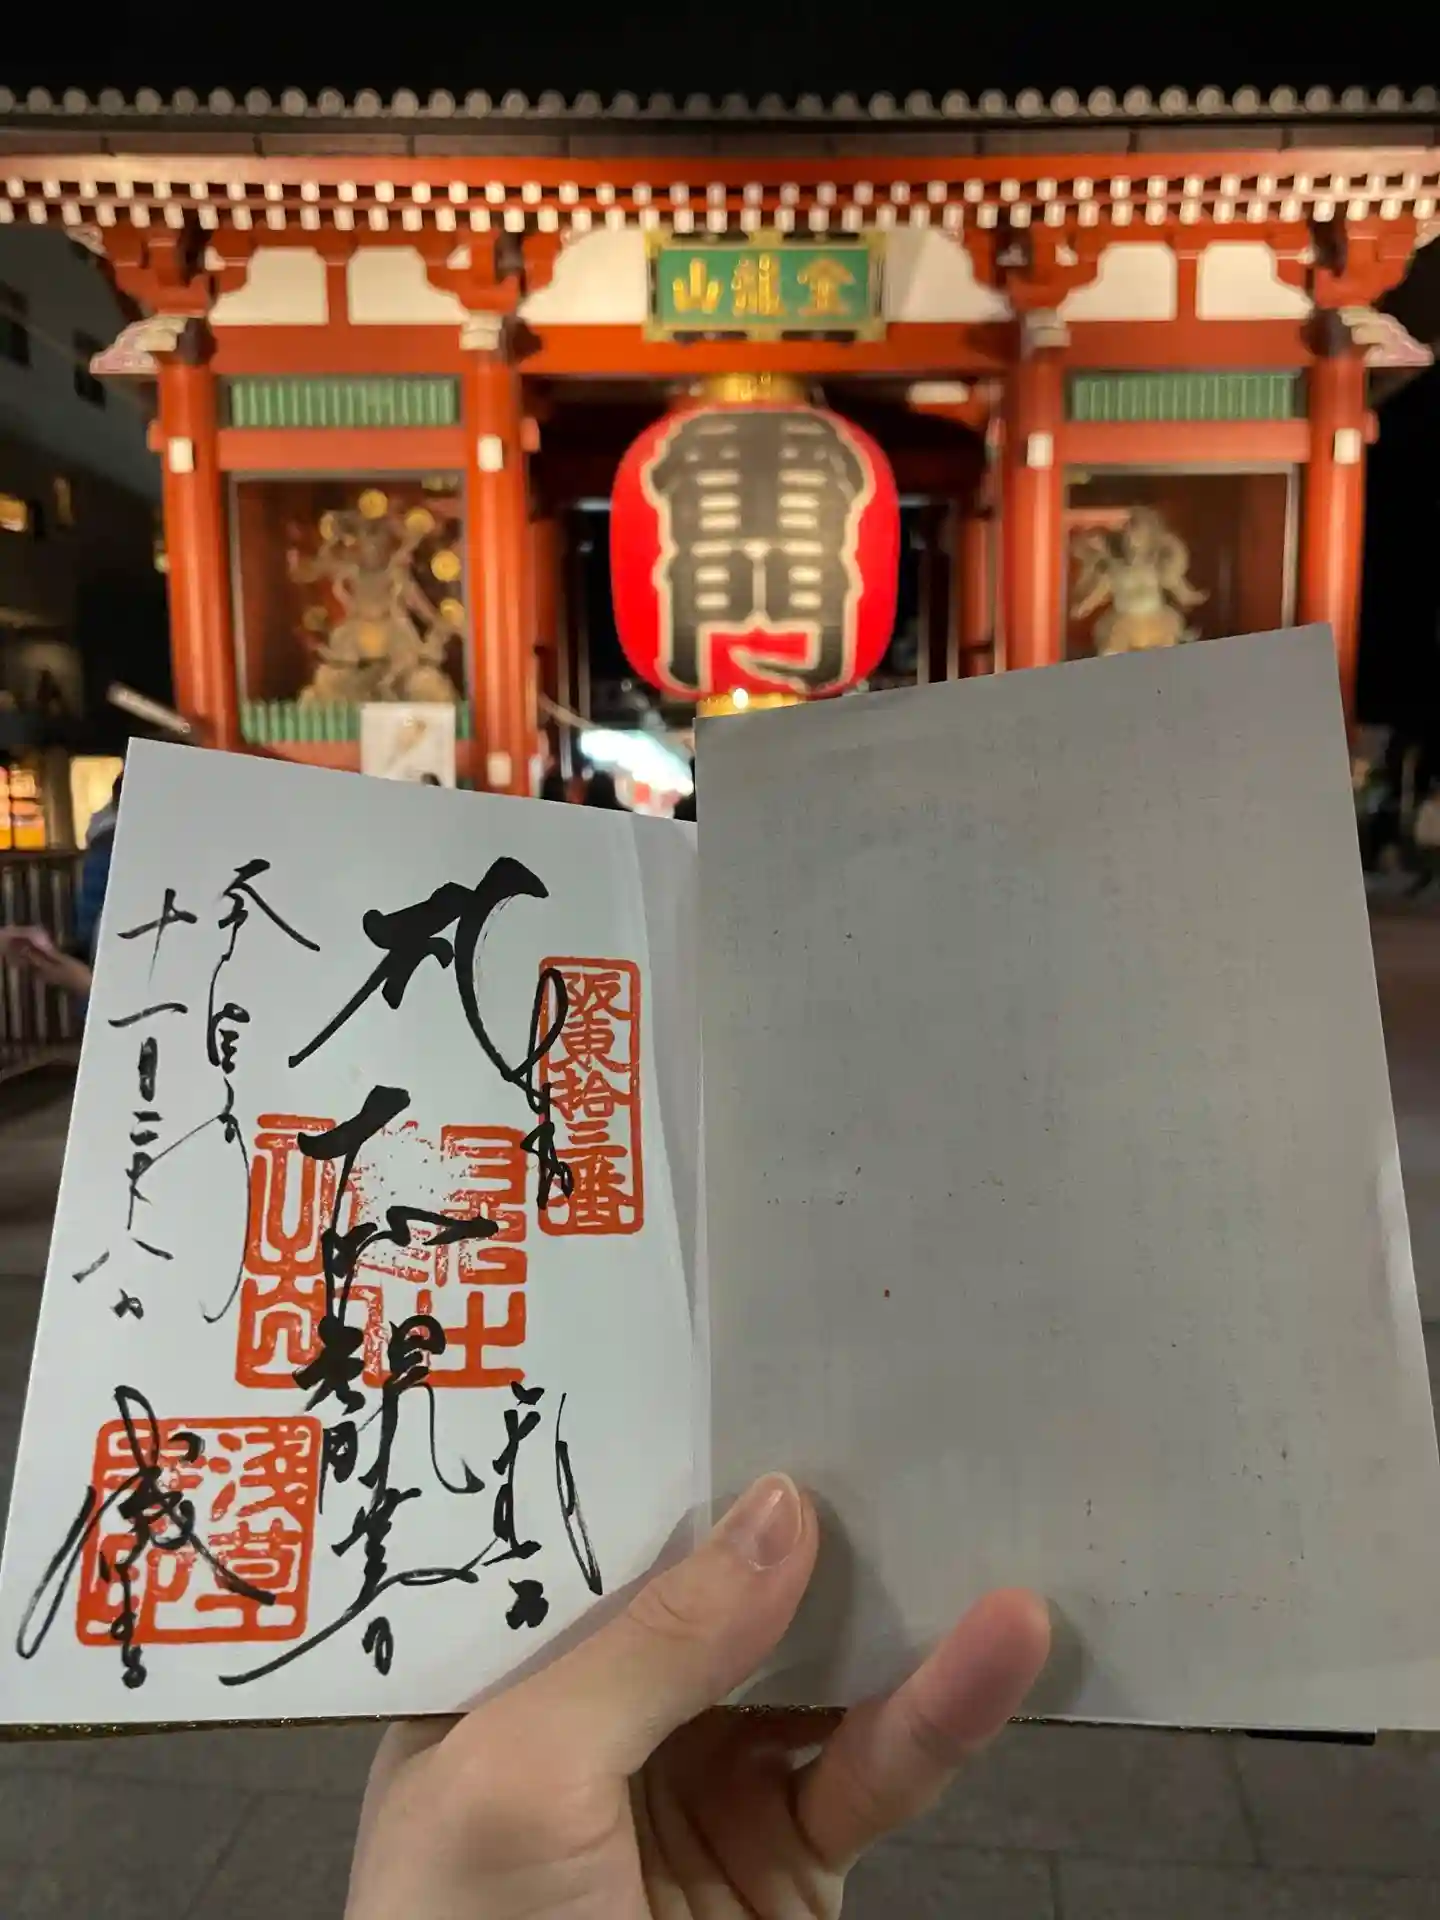 金龍山
雷門
奉拝
阪東拾三番
聖観世音
浅草寺
令和
十一月二十八日
浅草
寺印